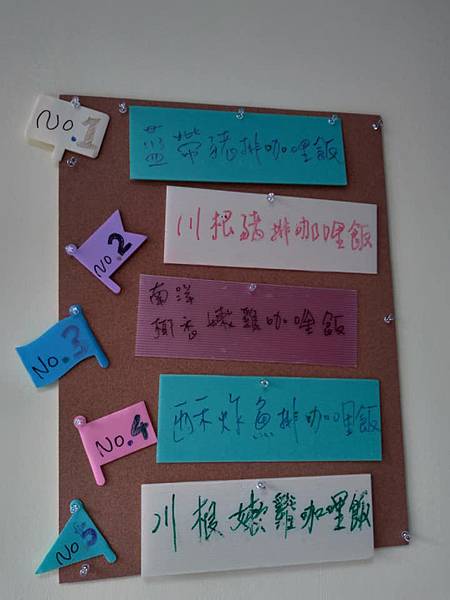 No.1
藍帶豬排咖哩飯
No.2
川根豬排咖哩飯
No.3
南洋
椰香嫩雞咖哩飯
No.4
酥炸魚排咖哩飯
No.5
川根嫩雞咖哩飯